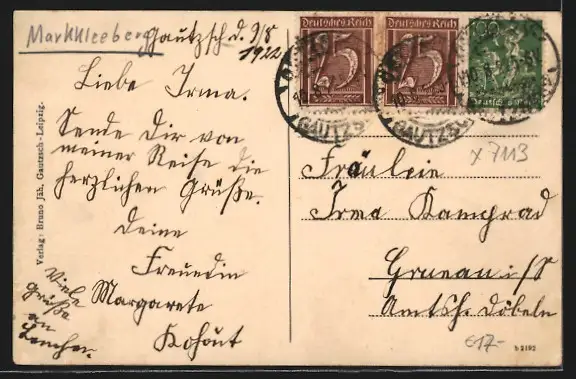 Markkleeberg
Gautzsch d. 9/8
1922
Liebe Irma.
Sende Dir von
meiner Reise die
herzlichen Grüße.
Deine
Freundin
Margarete
Kohout
Viele
grüße
an
Verlag: Bruno Jäh, Gautzsch-Leipzig.
Deutsches Reich
75
Deutsches Reich
75
100
Deutsches Reich
GAUTZSCH
GAUTZSCH
x 7113
Fräulein
Irma Kamprad
Grunau i/S
Amtsh. Döbeln
€17-
b 2192